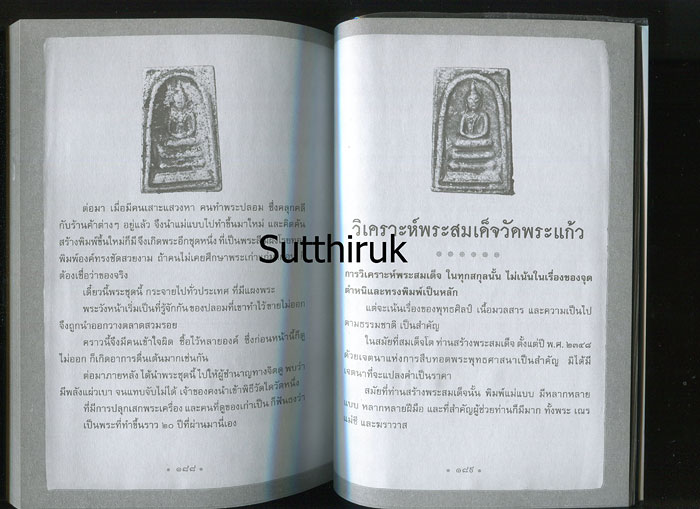 ต่อมา เมื่อมีคนเสาะแสวงหา คนทำพระปลอม ซึ่งคลุกคลี
กับร้านค้าต่างๆ อยู่แล้ว จึงนำแม่แบบไปทำขึ้นมาใหม่ และคิดค้น
สร้างพิมพ์ขึ้นใหม่ก็มี จึงเกิดพระอีกชุดหนึ่ง ที่เป็นพระ
พิมพ์องค์ทรงชัดสวยงาม ถ้าคนไม่เคยศึกษาพระเก่า
ต้องเชื่อว่าของจริง
เดี๋ยวนี้พระชุดนี้ กระจายไปทั่วประเทศ ที่มีแผงพระ
พระวังหน้าเริ่มเป็นที่รู้จักกัน ของปลอมที่เขาทำไว้ขายไม่ออก
จึงถูกนำออกวางตลาดสวมรอย
คราวนี้จึงมีคนเข้าใจผิด ซื้อไว้หลายองค์ ซึ่งก่อนหน้านี้ก็ดู
ไม่ออก ก็เกิดอาการตื่นเต้นมากเช่นกัน
ต่อมาภายหลัง ได้นำพระชุดนี้ ไปให้ผู้ชำนาญทางจิตดู พบว่า
มีพลังแผ่วเบา จนแทบจับไม่ได้ เจ้าของคงนำเข้าพิธีวัดใดวัดหนึ่ง
ที่มีการปลุกเสกพระเครื่อง และคนที่ดูของเก่าเป็น ก็ฟันธงว่า
เป็นพระที่ทำขึ้นราว ๒๐ ปีที่ผ่านมานี่เอง
• ๑๘๘ •
วิเคราะห์พระสมเด็จวัดพระแก้ว
Sutthiruk
การวิเคราะห์พระสมเด็จ ในทุกสกุลนั้น ไม่เน้นในเรื่องของจุด
ตำหนิและทรงพิมพ์เป็นหลัก
แต่จะเน้นเรื่องของพุทธศิลป์ เนื้อมวลสาร และความเป็นไป
ตามธรรมชาติ เป็นสำคัญ
ในสมัยที่สมเด็จโต ท่านสร้างพระสมเด็จ ตั้งแต่ปี พ.ศ. ๒๓๔๘
ด้วยเจตนาแห่งการสืบทอดพระพุทธศาสนาเป็นสำคัญ มิได้มี
เจตนาที่จะแปลงค่าเป็นราคา
สมัยที่ท่านสร้างพระสมเด็จนั้น พิมพ์แม่แบบ มีหลากหลาย
แบบ หลากหลายฝีมือ และที่สำคัญผู้ช่วยท่านก็มีมาก ทั้งพระ เณร
แม่ชี และฆราวาส
• ๑๘๙ •